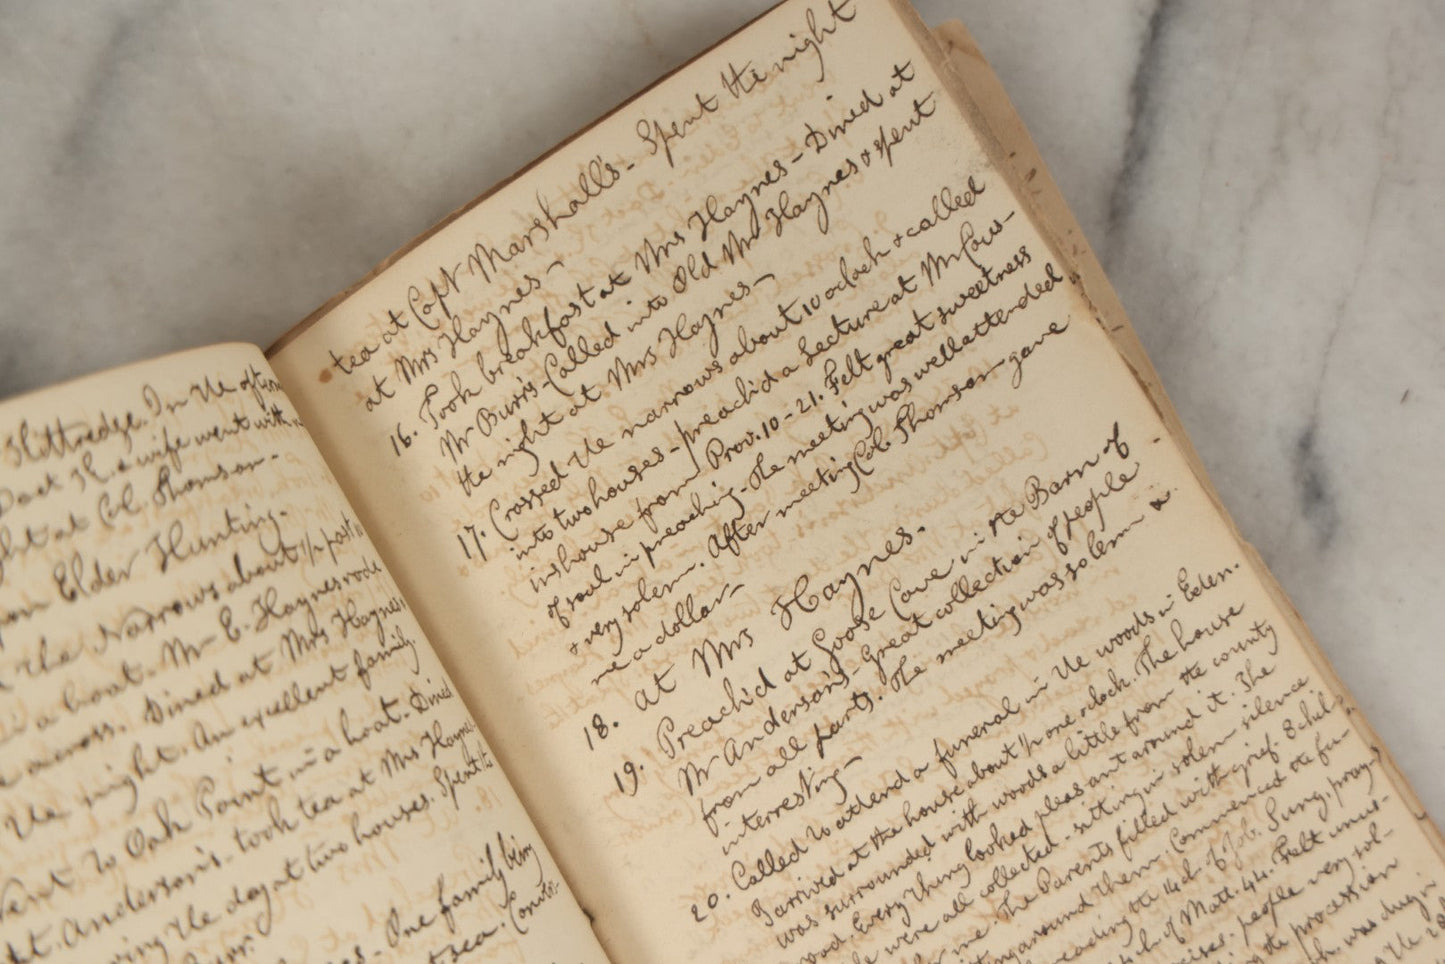 Kittredge. In the afternoon
Doct K. & wife went with
at Col. Thomson -
Elder Hunting.
the Narrows about 1/2 past
in a boat. Mr E. Haynes rode
across. Dined at Mrs Haynes,
the night. An excellent family.
Went to Oak Point in a boat. Dined
Anderson's. took tea at Mrs Haynes
the day at two houses. Spent the
One family being
tea at Capt Marshall's - Spent the night
at Mrs Haynes -
16. Took breakfast at Mrs Haynes - Dined at
Mr Burrs - Called into Old Mr Haynes & spent
the night at Mrs Haynes -
17. Crossed the narrows about 10 oclock & called
into two houses - preach'd a Lecture at Mr Cous-
ins house from Prov. 10 - 21. Felt great sweetness
of soul in preaching - The meeting was well attended
& very solem. After meeting Col. Thomson gave
me a dollar -
18. at Mrs Haynes.
19. Preach'd at Goose Cove in the Barn of
Mr Anderson's - great collection of people -
from all parts. The meeting was solem &
interresting -
20. Called to attend a funeral in the woods in Eden.
I arrived at the house about 1/2 one oclock. The house
was surrounded with woods a little from the county
road. Every thing looked pleasant around it. The
people were all collected - sitting in solem silence
me. The Parents filled with grief. 8 chil-
sitting around them. Commenced the fu-
reading the 14 ch. of Job. Sung, pray-
of Matt. 44. Felt unus-
people very sol-
the procession
was dug in